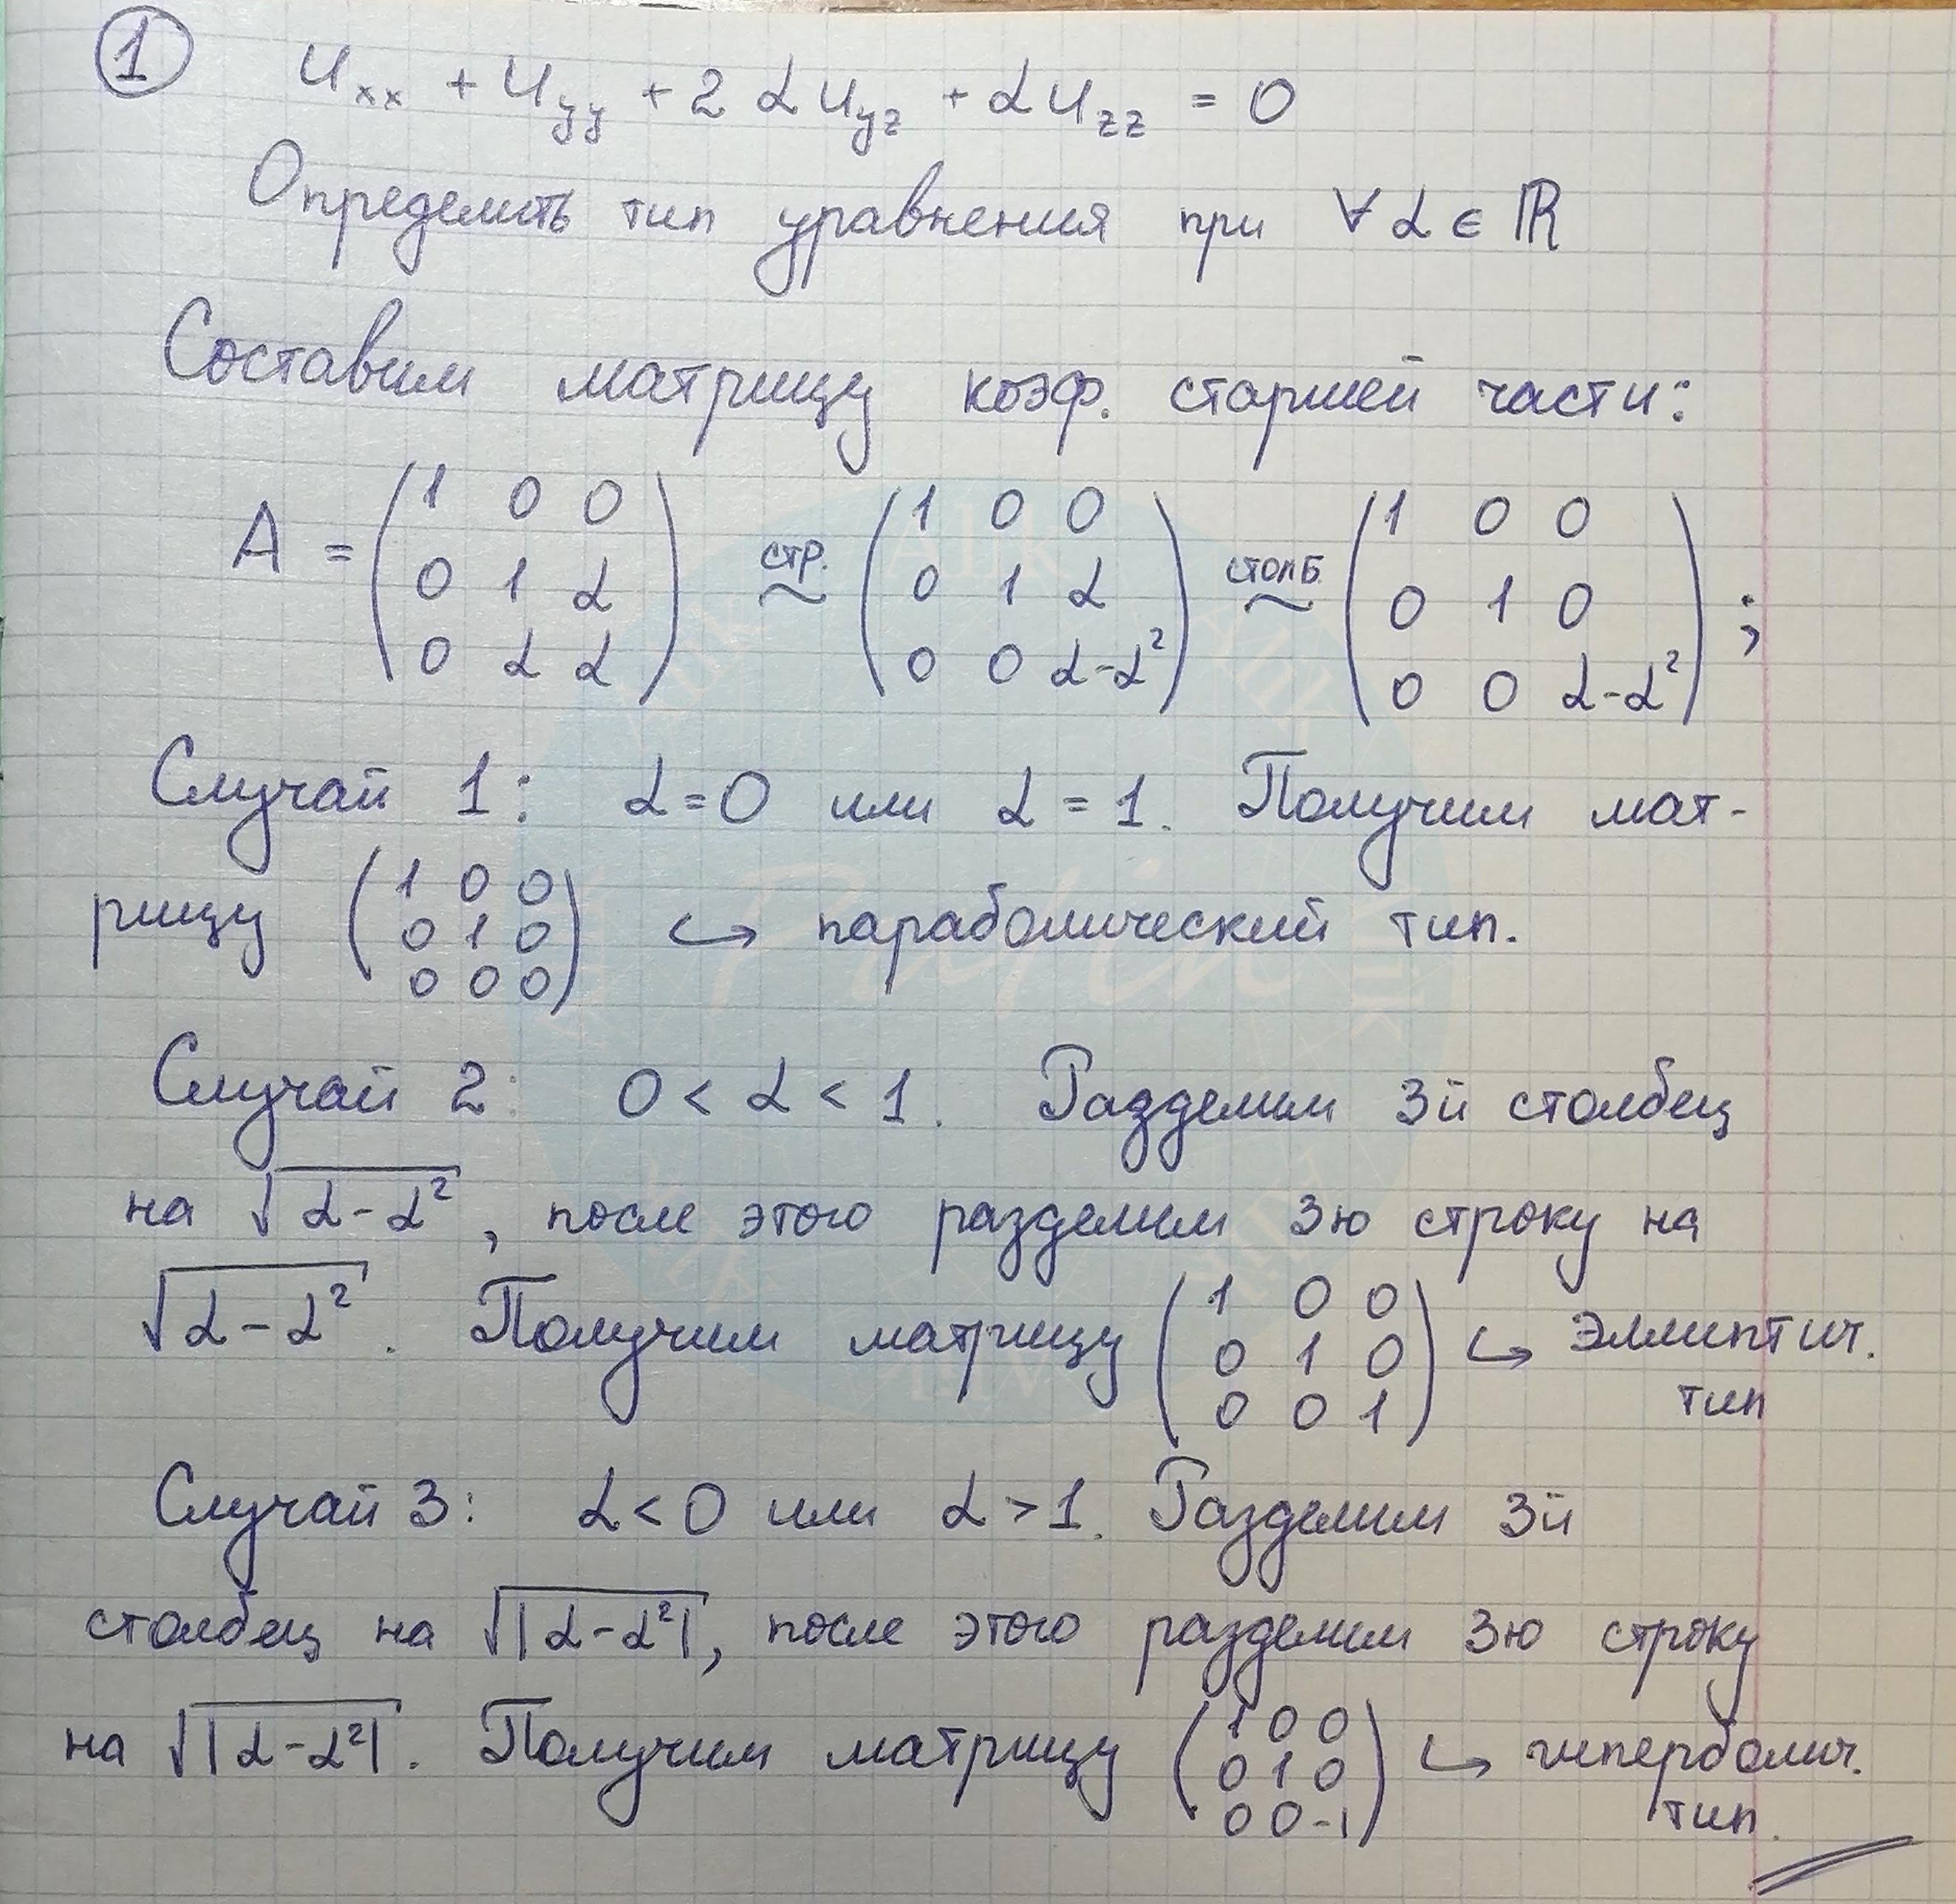 1 u_xx + u_yy + 2αu_yz + αu_zz = 0
Определить тип уравнения при ∀ α ∈ ℝ
Составим матрицу коэф. старшей части:
A = (1 0 0; 0 1 α; 0 α α) стр. ~ (1 0 0; 0 1 α; 0 0 α-α²) столб. ~ (1 0 0; 0 1 0; 0 0 α-α²);
Случай 1: α=0 или α=1. Получим мат-
рицу (1 0 0; 0 1 0; 0 0 0) ↪ параболический тип.
Случай 2: 0 < α < 1. Разделим 3й столбец
на √(α-α²), после этого разделим 3ю строку на
√(α-α²). Получим матрицу (1 0 0; 0 1 0; 0 0 1) ↪ эллиптич.
тип
Случай 3: α<0 или α>1. Разделим 3й
столбец на √|α-α²|, после этого разделим 3ю строку
на √|α-α²|. Получим матрицу (1 0 0; 0 1 0; 0 0 -1) ↪ гиперболич.
тип.